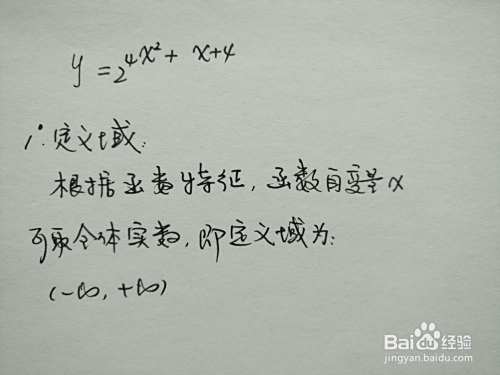 y = 2^{4x²+ x+4}
1°. 定义域:
根据函数特征, 函数自变量x
可取全体实数, 即定义域为:
(-∞, +∞)
Baidu 经验
jingyan.baidu.com